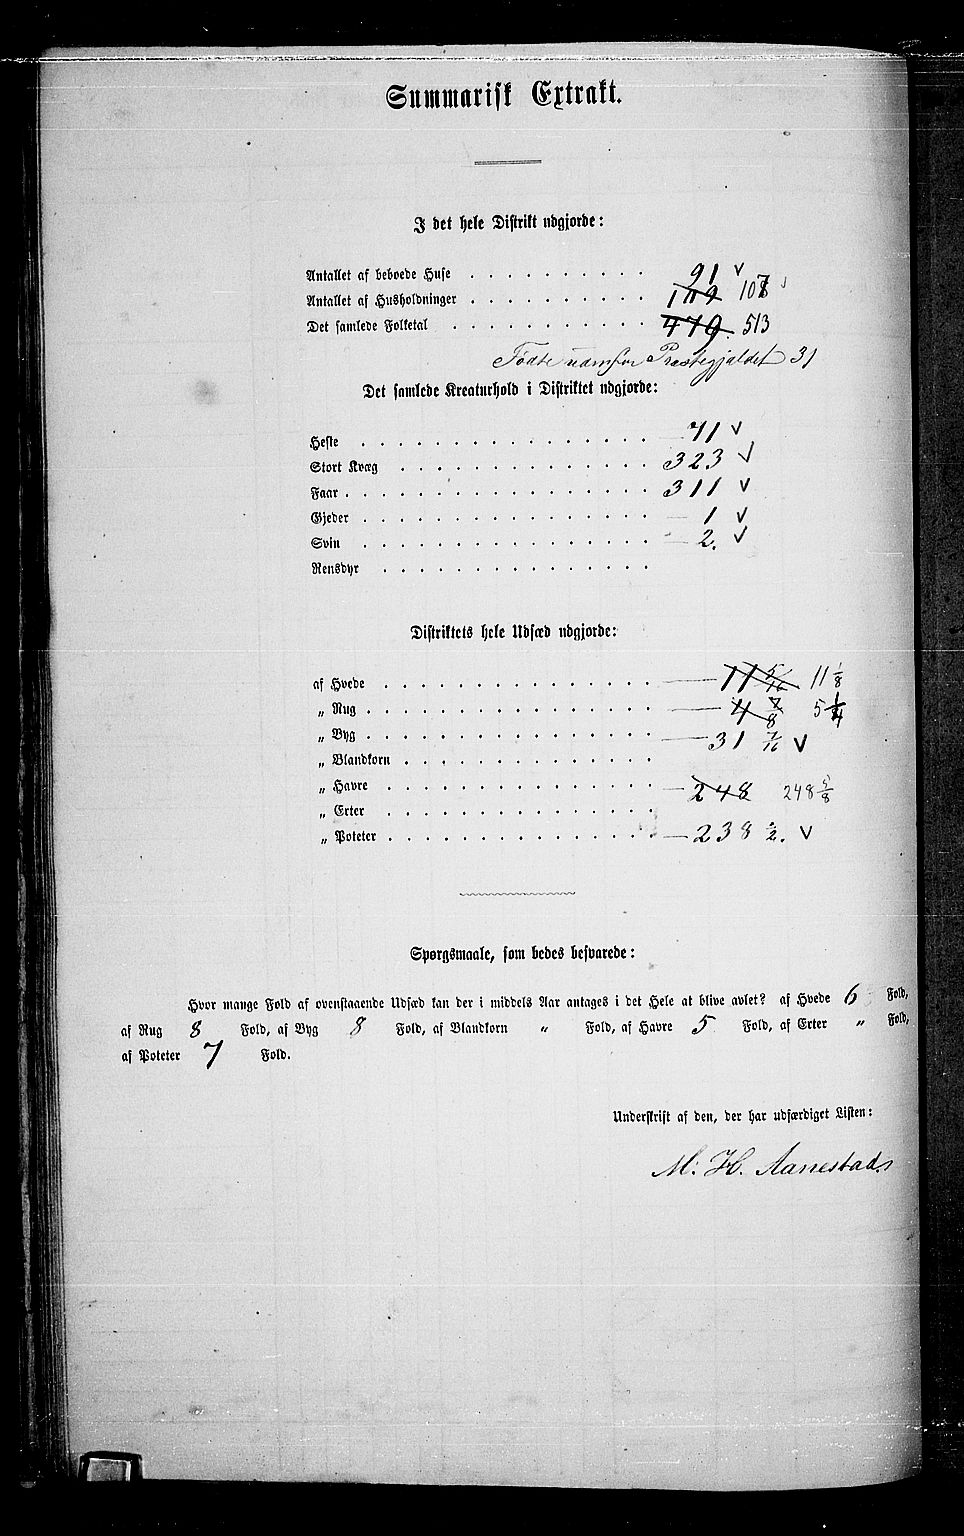 Summarisk Extrakt.
I det hele Distrikt udgjorde:
Antallet af beboede Huse . . . . . . . . . . 91 v
Antallet af Husholdninger . . . . . . . . . . 109 107
Det samlede Folketal . . . . . . . . . . . 479. 513
Fødte udenfor Præstegjældet 31
Det samlede Kreaturhold i Distriktet udgjorde:
Heste . . . . . . . . . . . . . . . . 71 v
Stort Kvæg . . . . . . . . . . . . . . 323 v
Faar . . . . . . . . . . . . . . . . . 311 v
Gjeder . . . . . . . . . . . . . . . . 1 v
Svin . . . . . . . . . . . . . . . . 2. v
Rensdyr . . . . . . . . . . . . . . .
Distriktets hele Udsæd udgjorde:
af Hvede . . . . . . . . . . . . . . 11 5/16 11 1/8
„ Rug . . . . . . . . . . . . . . . 4 7/8 5 1/4
„ Byg . . . . . . . . . . . . . . . 31 7/16 v
„ Blandkorn . . . . . . . . . . . . .
„ Havre . . . . . . . . . . . . . . 248 248 5/8
„ Erter . . . . . . . . . . . . . .
„ Poteter . . . . . . . . . . . . . . 238 v
Spørgsmaale, som bedes besvarede:
Hvor mange Fold af ovenstaaende Udsæd kan der i middels Aar antages i det Hele at blive avlet? af Hvede 6 Fold,
af Rug 8 Fold, af Byg 8 Fold, af Blandkorn „ Fold, af Havre 5 Fold, af Erter „ Fold,
af Poteter 7 Fold.
Underskrift af den, der har udfærdiget Listen:
M. H. Aanestad